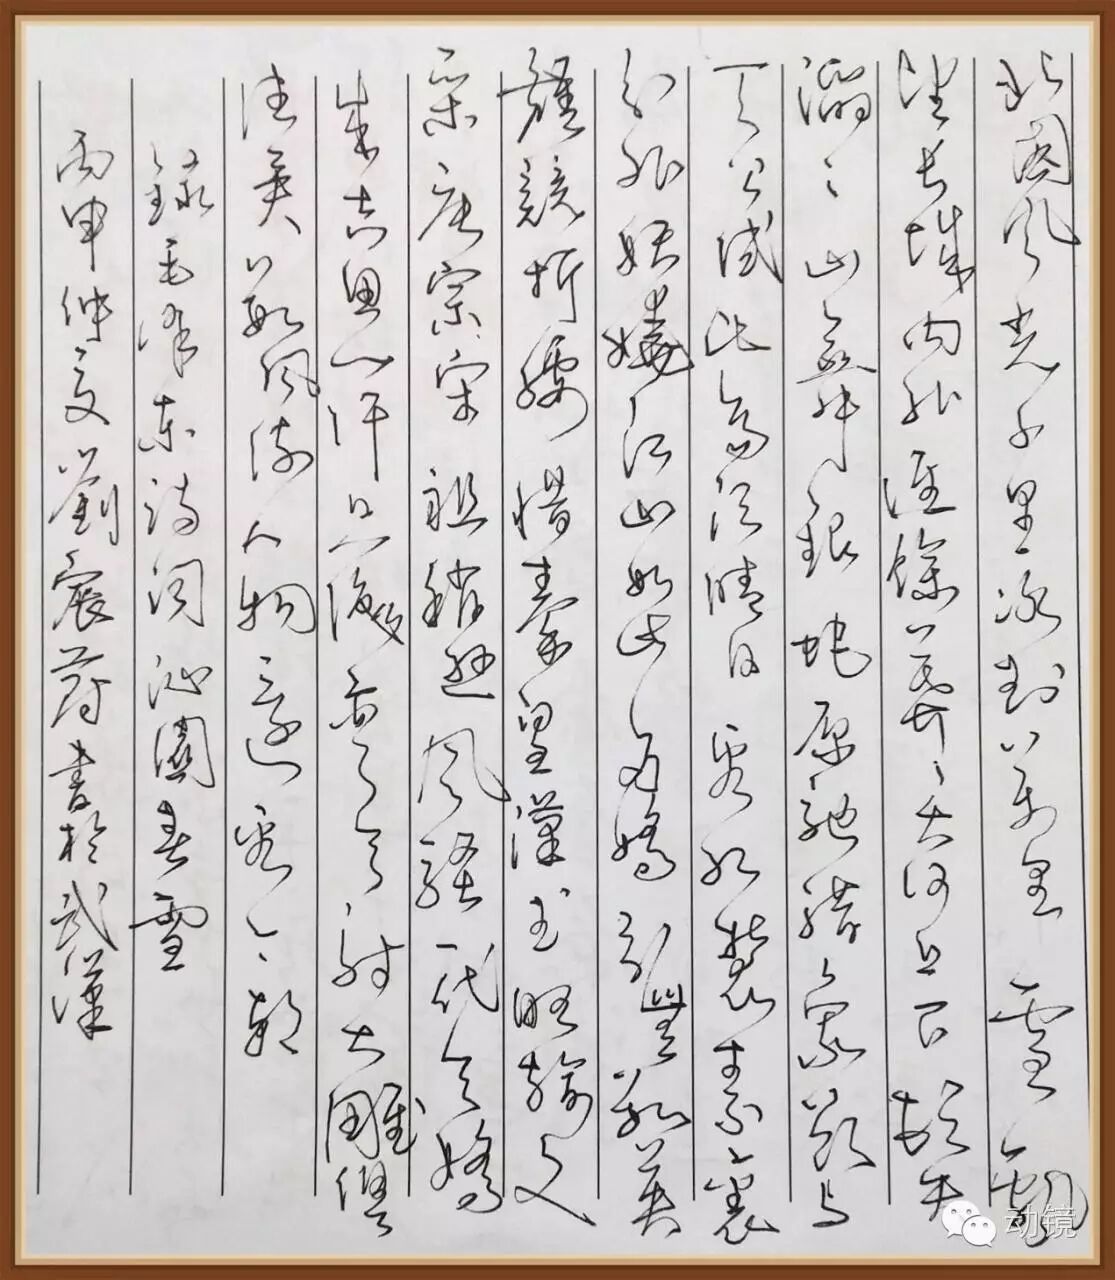 北國风光千里冰封萬里雪飘
望長城内外唯餘莽〻大河上下頓失
滔〻山舞銀蛇原馳蜡象欲与
天公试比高须晴日看红装素裹
分外妖娆江山如此多嬌引無數英
雄競折腰惜秦皇漢武略输文
采唐宗宋祖稍遜风骚一代天骄
成吉思汗只识弯弓射大雕俱
往矣數风流人物還看今朝
録毛泽东诗词沁園春雪
丙申仲夏劉宸荮書於武漢
动镜